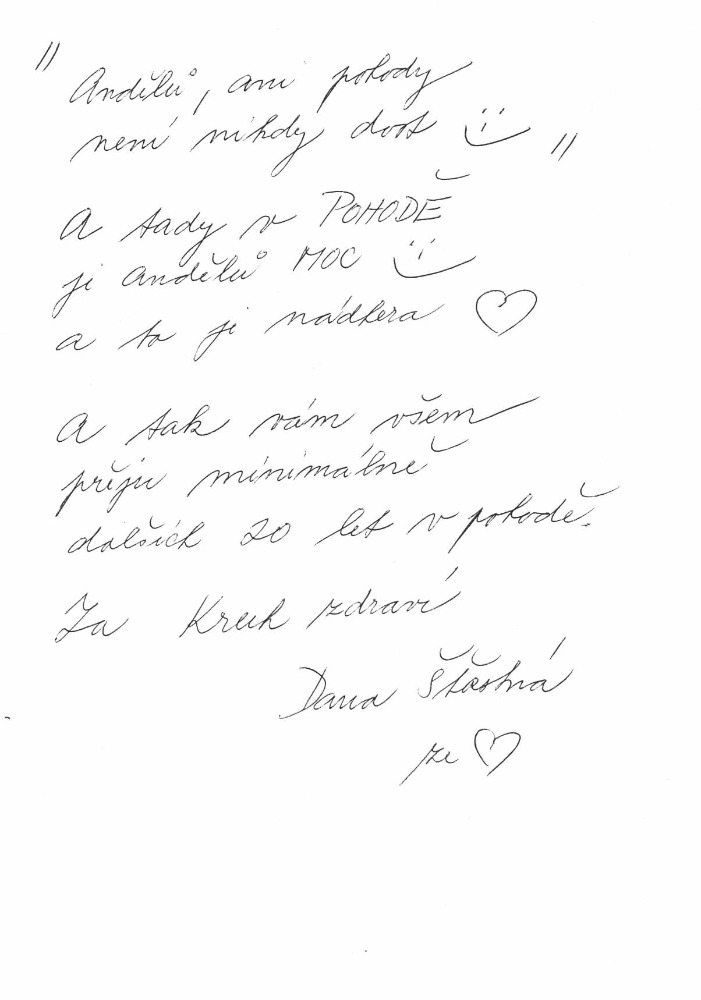 " Andělů, ani pohody
není nikdy dost "
A tady v POHODĚ
je andělů MOC
a to je nádhera
A tak vám všem
přeju minimálně
dalších 20 let v pohodě.
Za Kruh zdraví
Dana Šťastná
ze